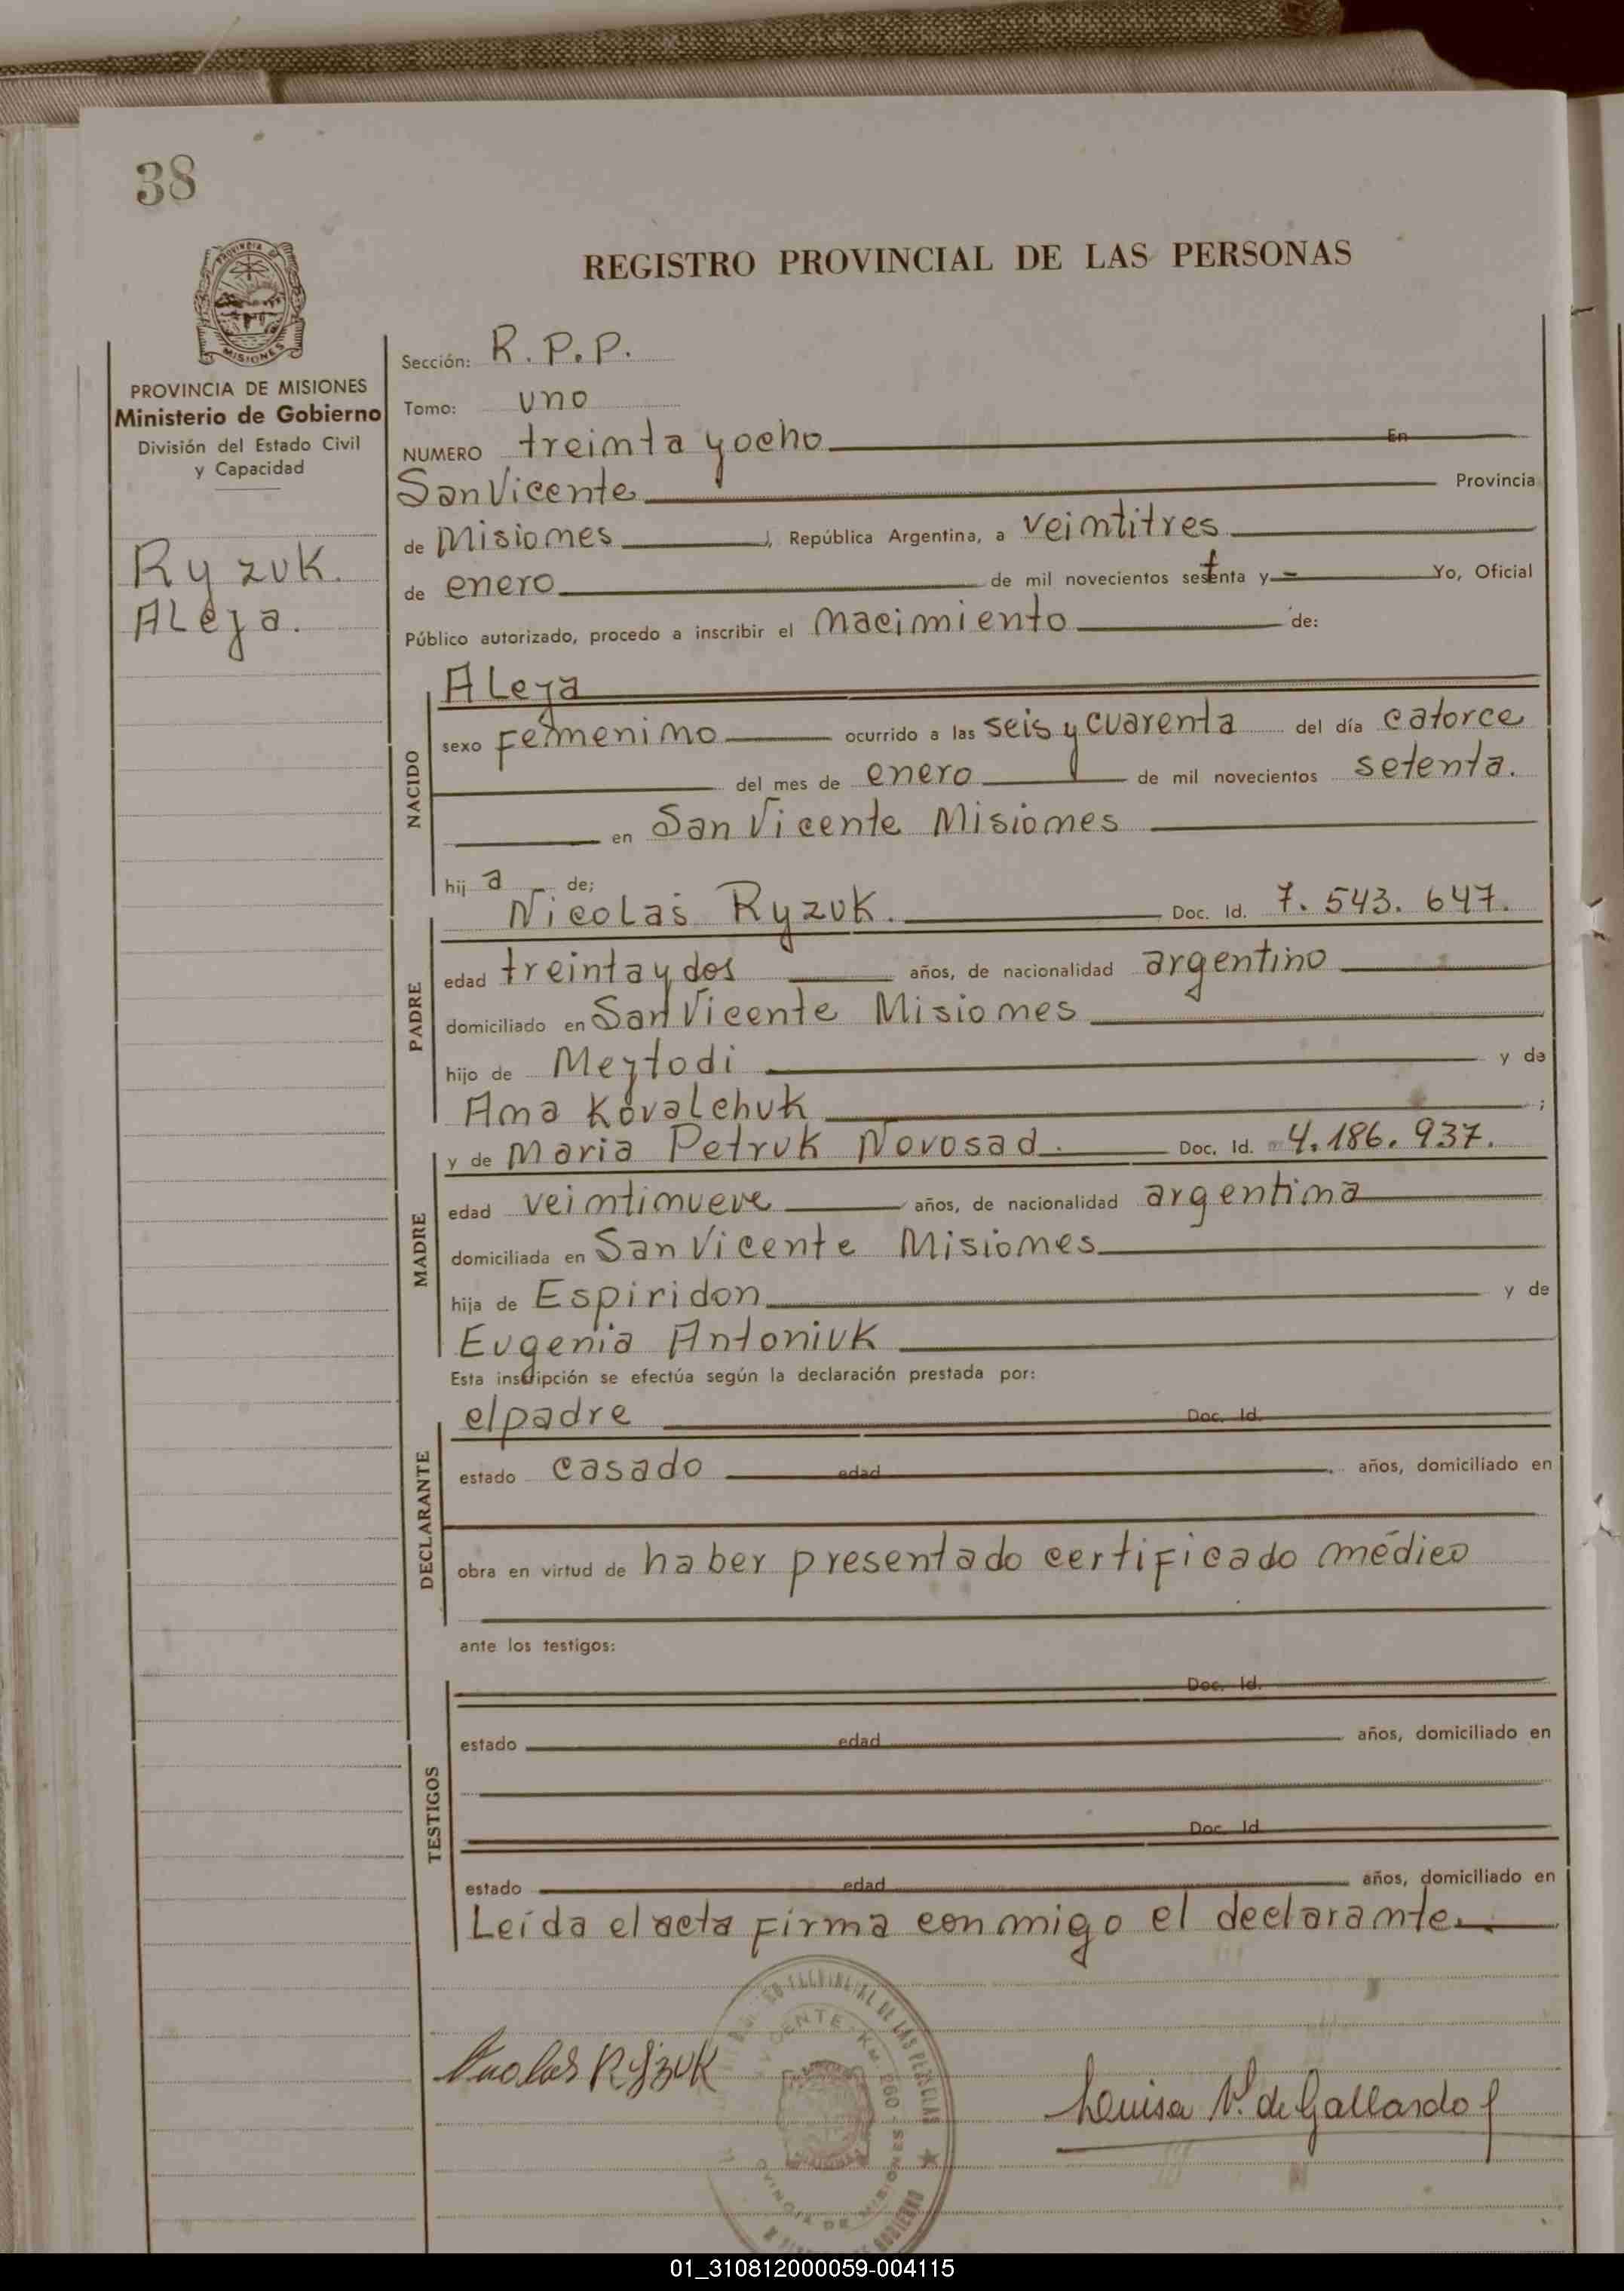 38
PROVINCIA DE
MISIONES
REGISTRO PROVINCIAL DE LAS PERSONAS
PROVINCIA DE MISIONES
Ministerio de Gobierno
División del Estado Civil
y Capacidad
Ryzuk.
Aleja.
Sección: R.P.P.
Tomo: uno
NUMERO treinta y ocho En
San Vicente Provincia
de Misiones, República Argentina, a veintitres
de enero de mil novecientos setenta y - Yo, Oficial
Público autorizado, procedo a inscribir el nacimiento de:
NACIDO
Aleja
sexo femenino ocurrido a las seis y cuarenta del día catorce
del mes de enero de mil novecientos setenta.
en San Vicente Misiones
hij a de;
PADRE
Nicolas Ryzuk. Doc. Id. 7.543.647.
edad treinta y dos años, de nacionalidad argentino
domiciliado en San Vicente Misiones
hijo de Mejtodi y de
Ana Kovalchuk ;
MADRE
y de Maria Petruk Novosad. Doc. Id. 4.186.937.
edad veintinueve años, de nacionalidad argentina
domiciliada en San Vicente Misiones
hija de Espiridon y de
Eugenia Antoniuk
Esta inscripción se efectúa según la declaración prestada por:
DECLARANTE
el padre Doc. Id.
estado casado edad años, domiciliado en
obra en virtud de haber presentado certificado médico
ante los testigos:
TESTIGOS
Doc. Id.
estado edad años, domiciliado en
Doc. Id
estado edad años, domiciliado en
Leída el acta firma conmigo el declarante.
Nicolas Ryzuk
Louisa V. de Gallardo
VICENTE - KM. 260 - MISIONES
PROVINCIAL DE LAS PERSONAS
PROVINCIA DE MISIONES
01_310812000059-004115